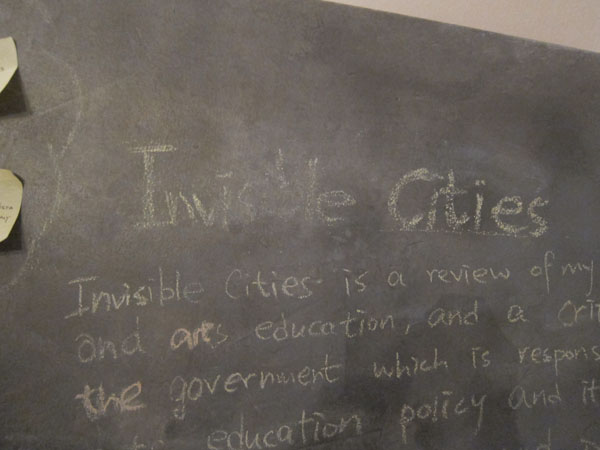 Invisible Cities
Invisible Cities is a review of my
and arts education, and a
the government which is
education policy and it